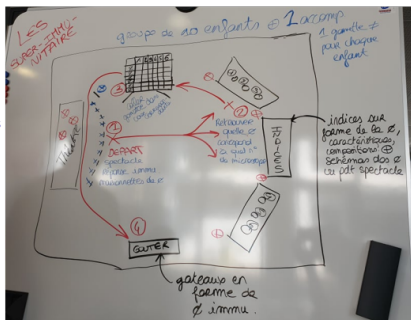 LES
SUPER-IMMU-
NITAIRE
groupe de 10 enfants ⊕ 1 accomp
1 gamelle ≠
pour chaque
enfant
①
DÉPART
spectacle
immu
②
Retrouver
quelle ∅
correspond
à quel n°
de microscope
INDICES
indices sur
forme de la ∅,
caractéristiques,
composition ⊕
schémas des ∅
vu pdt spectacle
③
④
GOUTER
gateaux en
forme de
∅ immu.